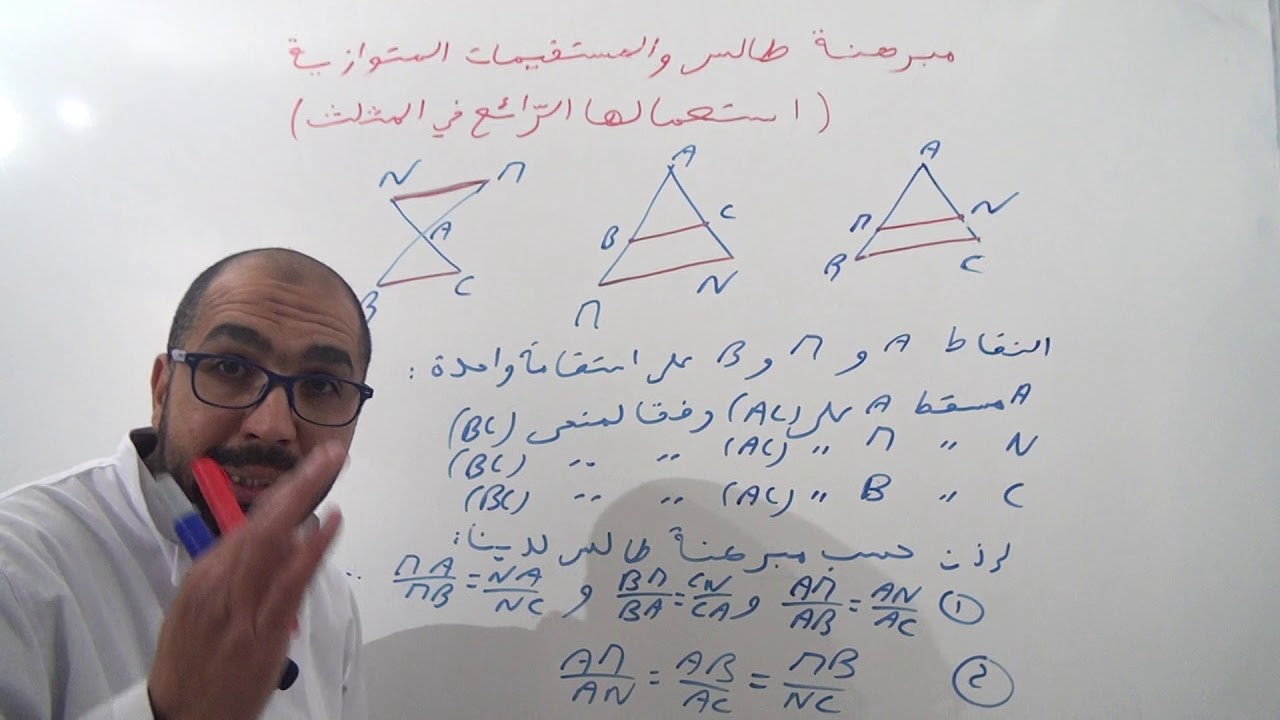 مبرهنة طالس والمستقيمات المتوازية
(استعمالها الرّائع في المثلث)
N M A B C
A B C M N
A M N B C
النقاط A و M و B على استقامة واحدة :
A مسقط A على (AC) وفقا لمنحى (BC)
N " M " (AC) " " (BC)
C " B " (AC) " " (BC)
إذن حسب مبرهنة طالس لدينا:
① AM/AB = AN/AC و BM/BA = CN/CA و MA/MB = NA/NC ..
② AM/AN = AB/AC = MB/NC